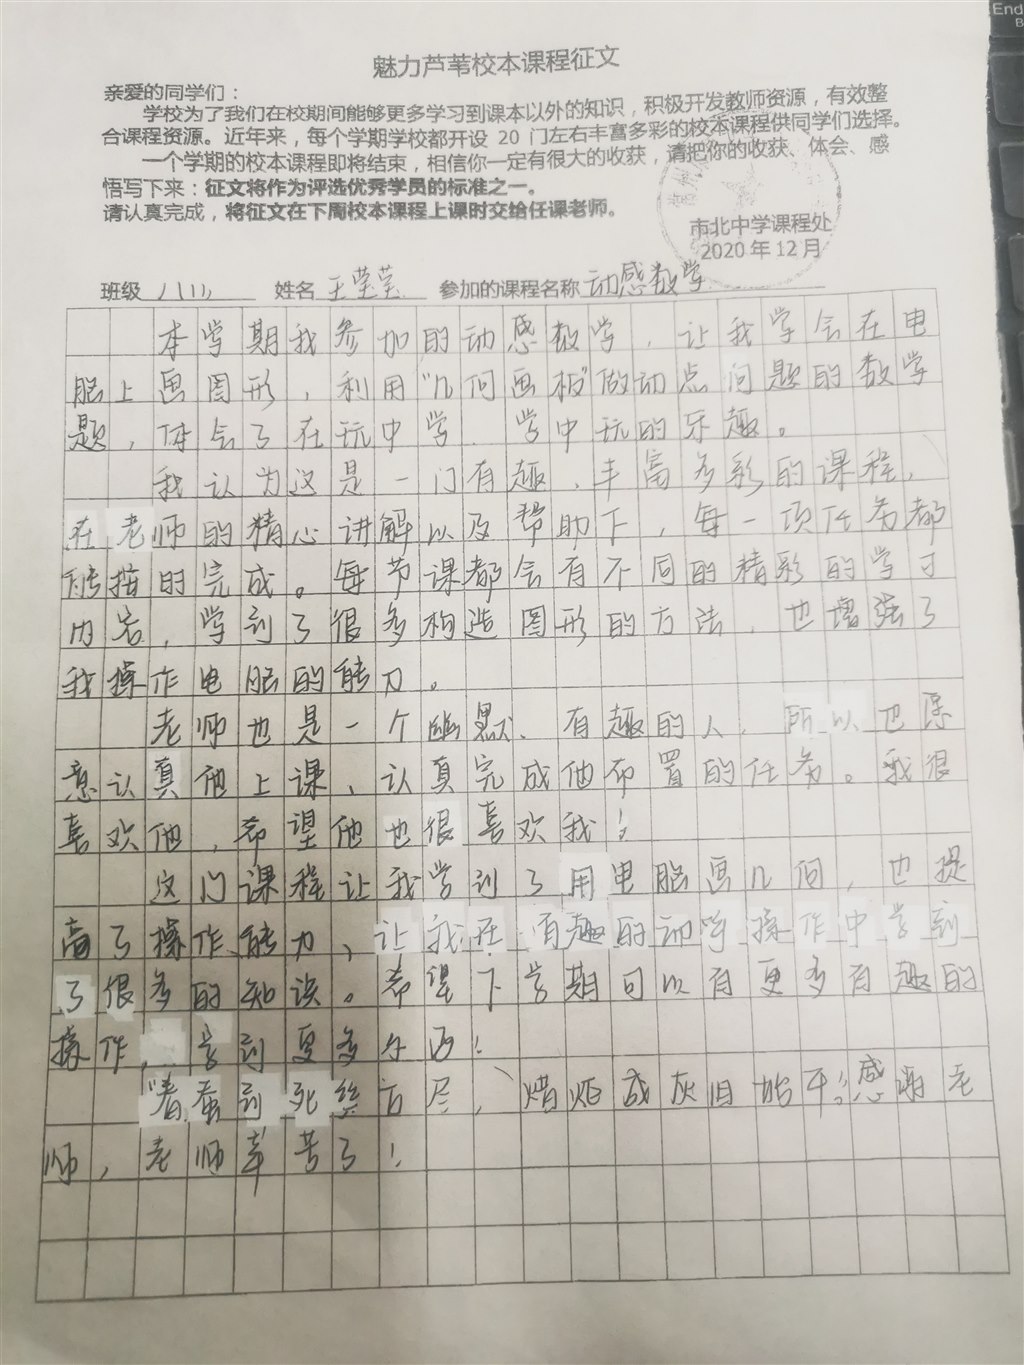 End
魅力芦苇校本课程征文
亲爱的同学们：
学校为了我们在校期间能够更多学习到课本以外的知识，积极开发教师资源，有效整
合课程资源。近年来，每个学期学校都开设 20 门左右丰富多彩的校本课程供同学们选择。
一个学期的校本课程即将结束，相信你一定有很大的收获，请把你的收获、体会、感
悟写下来：征文将作为评选优秀学员的标准之一。
请认真完成，将征文在下周校本课程上课时交给任课老师。
市北中学课程处
2020 年 12 月
班级 八(1) 姓名 王莹莹 参加的课程名称 动感数学
本学期我参加的动感数学，让我学会在电
脑上画图形，利用"几何画板"做动点问题的数学
题，体会了在玩中学、学中玩的乐趣。
我认为这是一门有趣、丰富多彩的课程，
在老师的精心讲解以及帮助下，每一项任务都
的完成。每节课都会有不同的精彩的学习
内容，学到了很多构造图形的方法，也增强了
我操作电脑的能力。
老师也是一个幽默、有趣的人，所以也愿
意认真他上课，认真完成他布置的任务。我很
喜欢他，希望他也很喜欢我！
这门课程让我学到了用电脑画几何，也提
高了操作能力，让我在有趣的动手操作中学到
了很多的知识。希望下学期可以有更多有趣的
操作，学到更多东西！
"春蚕到死丝方尽，蜡炬成灰泪始干。"感谢老
师，老师辛苦了！